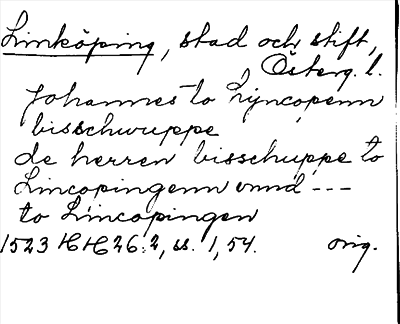 Linköping, stad och stift,
Österg. l.
Johannes to Lyncopenn
bisschwuppe
de herren bisschuppe to
Lincopingenn vnnd ---
to Lincopingen
1523 HH 26:2, ss. 1, 54. orig.